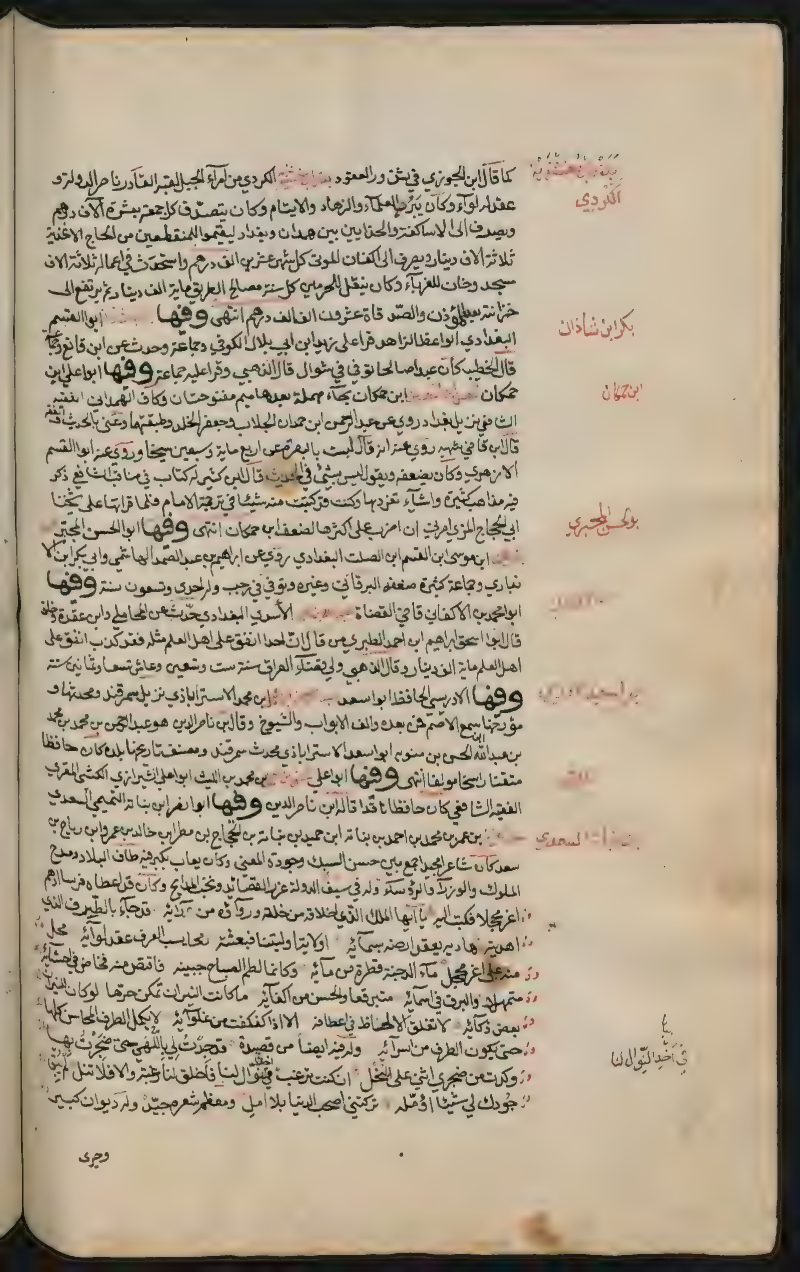 كما قال ابن الجوزي في شذور العقود بدر بن حسنويه الكردي من أمراء الجبل لقبه القادر ناصر الدولة و
عقد له لواء وكان يبرّ العلماء والزهاد والايتام وكان يتصدق كل جمعة بعشرة آلاف درهم
ويصرف الى الاساكفة والحذايين بين همدان وبغداد ليقيموا للمنقطعين من الحاج الاحذية
ثلاثة آلاف دينار ويصرف الى اكفان الموتى كل شهر عشرين الف درهم واستحدث في اعماله ثلاثة آلاف
مسجد وخان للغرباء وكان ينقل للحرمين كل سنة مصالح الطريق ماية الف دينار ثم يرتفع الى
خزانته بعد المؤن والصدقات عشرون الف الف درهم انتهى وفيها ابو القسم
البغدادي الواعظ الزاهد قرا على زيد ابن ابي بلال الكوفي وجماعة وحدث عن ابن قانع وجماعة
قال الخطيب كان عبدا صالحا توفي في شوال قال الذهبي وقرا عليه جماعة وفيها ابو علي ابن
حمكان ابن حمكان بحاء مهملة بعدها ميم مفتوحتان وكاف الهمداني الفقيه
الشافعي نزيل بغداد روى عن عبد الرحمن ابن حمدان الجلاب وجعفر الخلدي وطبقتهما وعني بالحديث
قال ابن قاضي شهبه روي عنه انه قال كتبت بالبصرة عن اربع ماية وسبعين شيخا وروى عنه ابو القسم
الازهري وكان يضعفه ويقول ليس بشيء في الحديث قال ابن كثير له كتاب في مناقب الشافعي ذكر
فيه مذاهب كثيرة واشياء تفرد بها وكنت قد كتبت منه شيئا في ترجمة الامام فلما قراتها على شيخنا
ابي الحجاج المزي امرني ان اضرب على اكثرها لضعف ابن حمكان انتهى وفيها ابو الحسن المجبر
ابن موسى ابن القسم ابن الصلت البغدادي روى عن ابراهيم بن عبد الصمد الهاشمي وابي بكر ابن الا
نباري وجماعة كثيرة ضعفه البرقاني وغيره وتوفي في رجب وله احدى وتسعون سنة وفيها
ابو محمد بن الاكفاني قاضي القضاة الأسدي البغدادي حدث عن المحاملي وابن عقدة وخلق
قال ابو اسحق ابراهيم ابن احمد الطبري من قال ان احدا انفق على اهل العلم مثله فقد كذب انفق على
اهل العلم ماية الف دينار وقال الذهبي ولي قضاء العراق سنة ست وتسعين وعاش تسعا وثمانين سنة
وفيها الادريسي الحافظ ابو اسعد ابن محمد الاسترابادي نزيل سمرقند ومحدثها و
مؤرخها سمع الاصم فمن بعده والف الابواب والشيوخ وقال ابن ناصر الدين هو عبد الرحمن بن محمد بن محمد
بن عبد الله ابن الحسن بن متويه ابو اسعد الاستراباذي محدث سمرقند ومصنف تاريخها بلدة كان حافظا
متقنا راسخا مؤلفا انتهى وفيها ابو علي بن محمد بن الليث ابو علي الشيرازي الكشي المقري
الفقيه الشافعي كان حافظا ناقدا قاله ابن ناصر الدين وفيها ابو نصر ابن نباتة التميمي السعدي
بن عمر بن محمد بن احمد بن نباتة ابن حميد بن نباتة بن الحجاج بن مطر ابن خالد بن عمرو ابن رباح بن
سعد كان شاعرا مجيدا جمع بين حسن السبك وجودة المعنى وكان يعاب بكبر فيه طاف البلاد ومدح
الملوك والوزراء والرؤساء وله في سيف الدولة غرر القصائد ونخب المدايح وكان قد اعطاه فرسا ادهم
اغر محجلا فكتب اليه يا ايها الملك الذي اخلاقه من خلقه ورواؤه من آرائه قد جاءنا الطرف الذي
اهديته هاديه يعقد ارضه بسمائه اولاية وليتنا فبعثته رمحا سبب العرف عقد لوائه نختل
منه على اغر محجل ماء الدجنة قطرة من مائه وكانما لطم الصباح جبينه فاقتص منه فخاض في احشائه
متمهلا والبرق في اسمائه متبرقعا والحسن من اكفائه ما كانت النيران تكمن حرها لو كان للنيران
بعض ذكائه لا تعلق الالحاظ في اعطافه الا اذا كفكفت من غلوائه لا يكمل الطرف المحاسن كلها
حتى يكون الطرف من اسرائه وله فيه ايضا من قصيدة قد جدت لي باللهى حتى ضجرت بها
وكدت من ضجري اثني على البخل ان كنت ترغب في اخذ النوال لنا فاخلق لنا رغبة والا فلا تنل لم يبق
جودك لي شيئا اؤمله تركتني اصحب الدنيا بلا امل ومعظم شعره جيد وله ديوان كبير
وجرى
بدر بن حسنويه
الكردي
بكر ابن شاذان
ابن حمكان
ابو الحسن المجبري
ابن نباتة السعدي
في اخذ النوال لنا